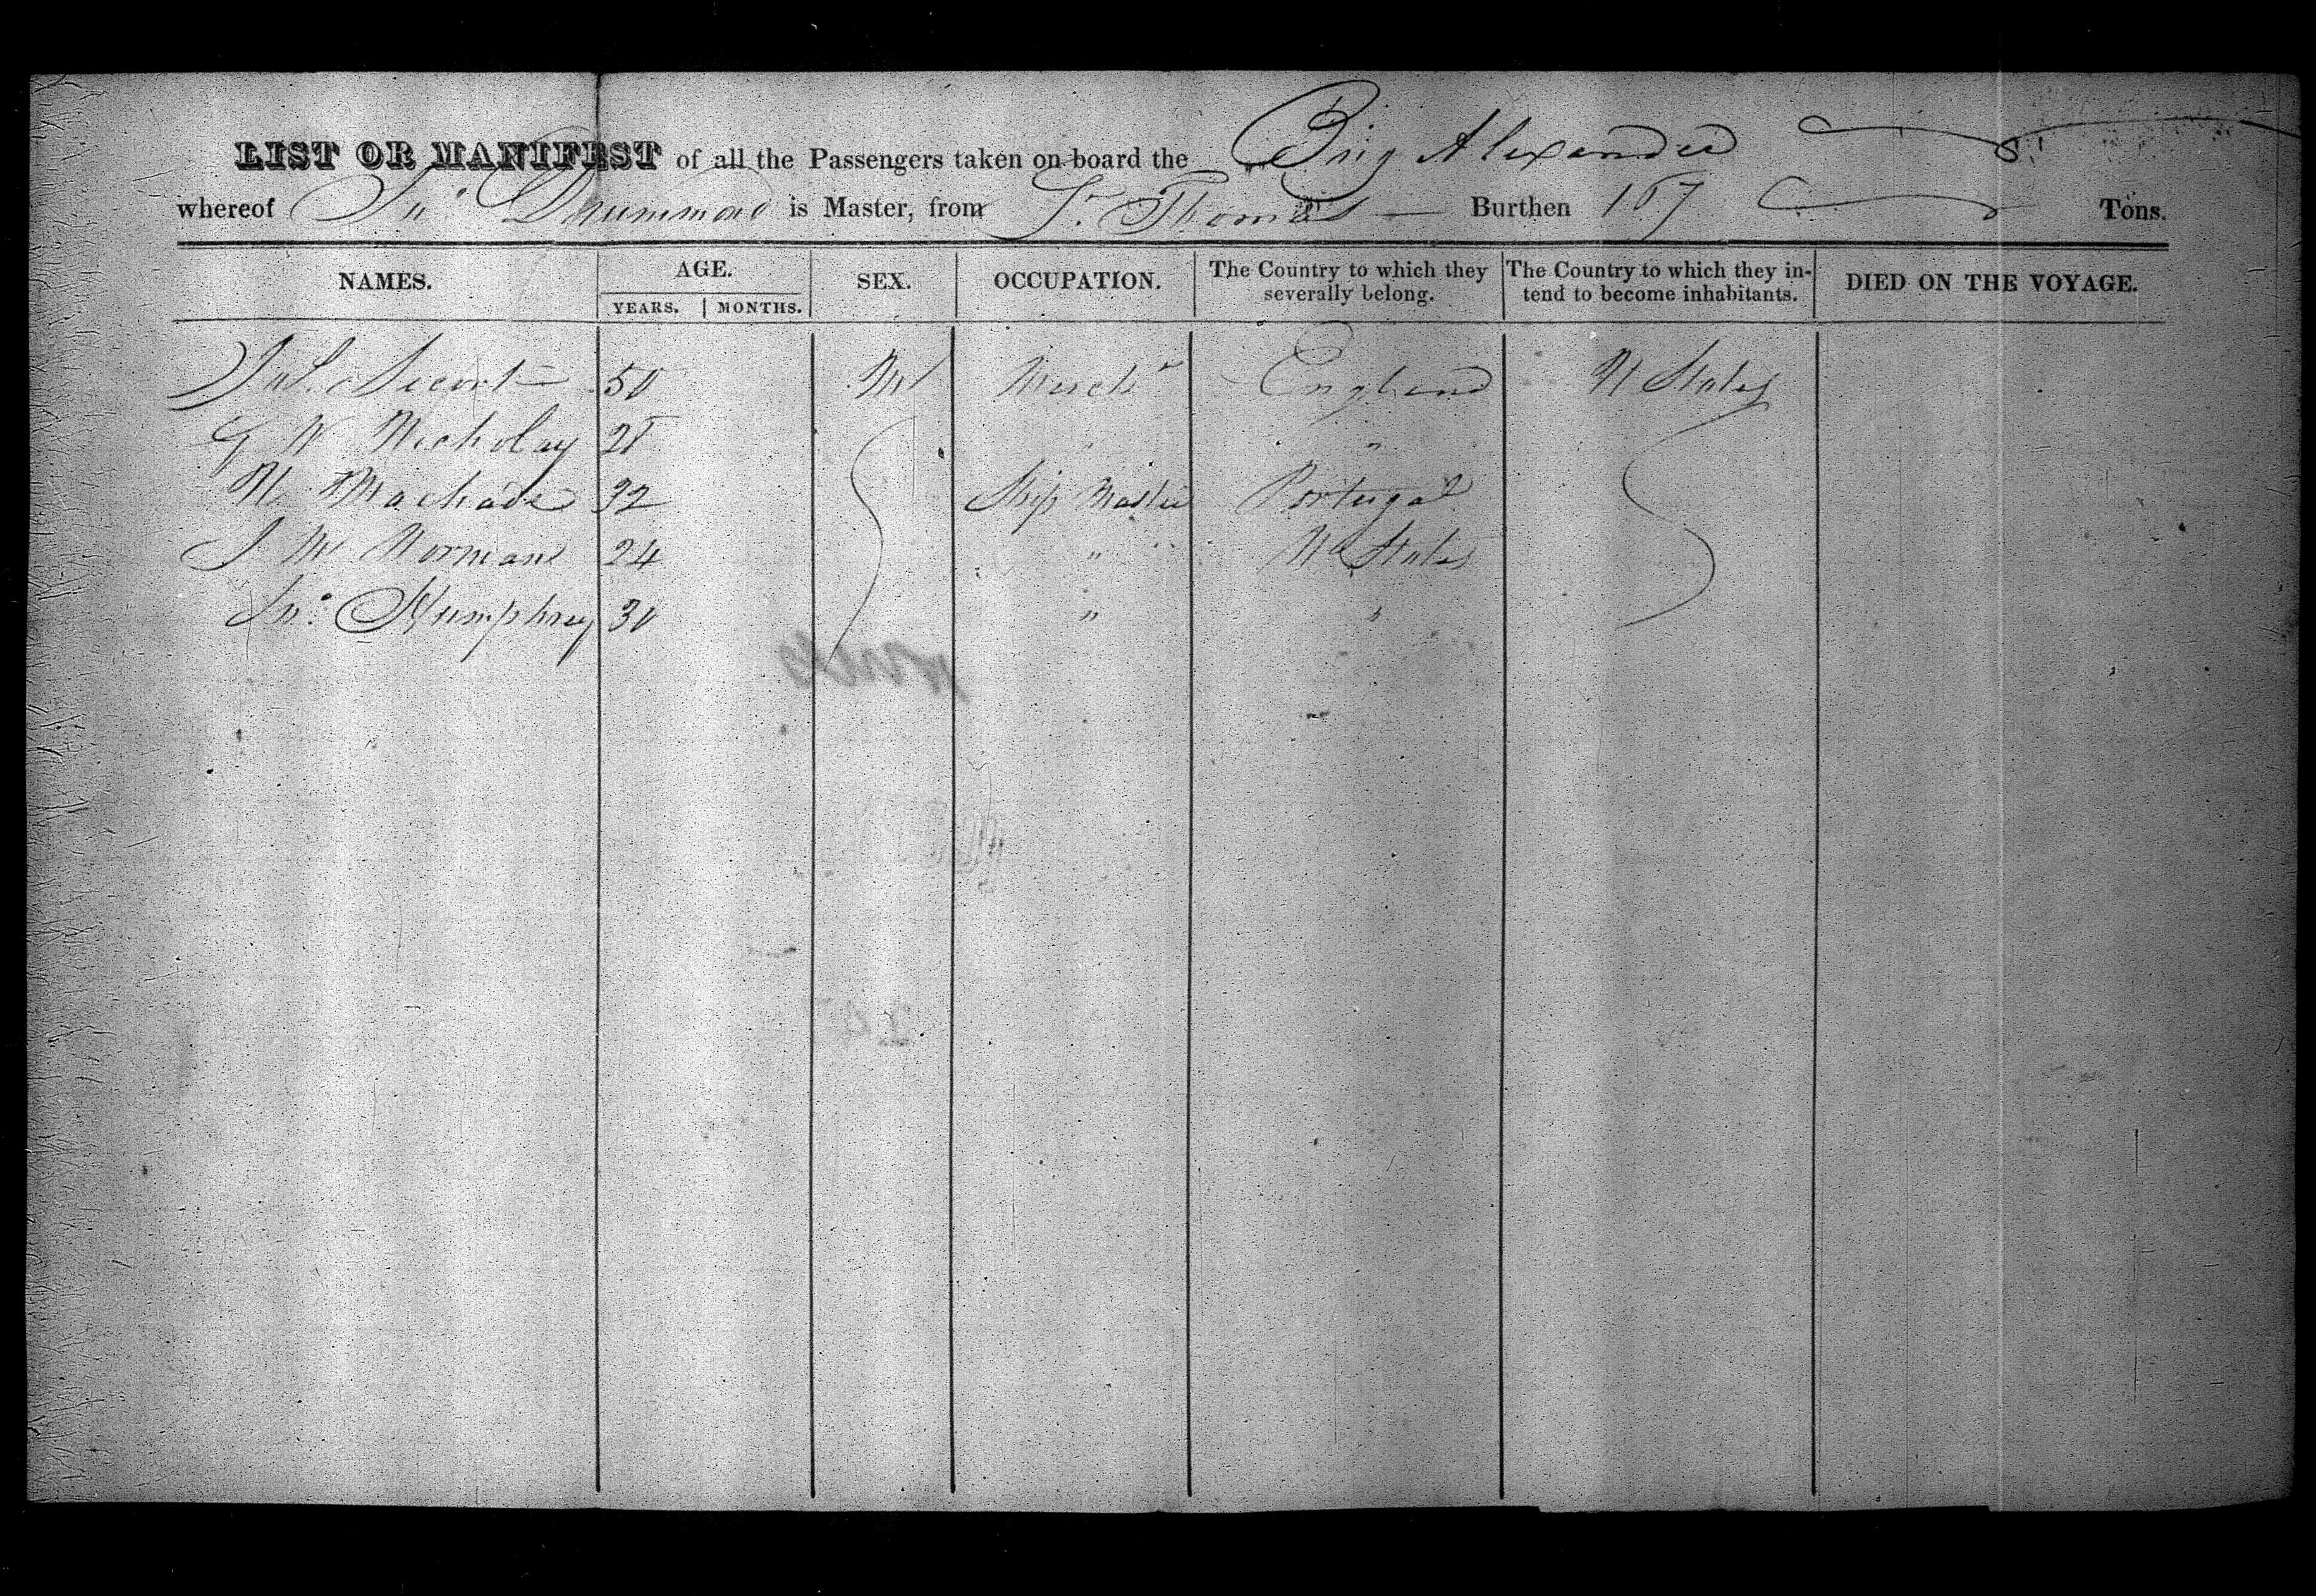 LIST OR MANIFEST of all the Passengers taken on board the Brig Alexander
whereof Jno Drummond is Master, from St. Thomas Burthen 167 Tons.
NAMES. AGE. SEX. OCCUPATION. The Country to which they severally belong. The Country to which they intend to become inhabitants. DIED ON THE VOYAGE.
YEARS. MONTHS.
50 M Mercht England U States
G W Nicholay 28 " "
Machado 32 Ship Master Portugal
J M Norman 24 " U States
Jno. Humphrey 30 " "